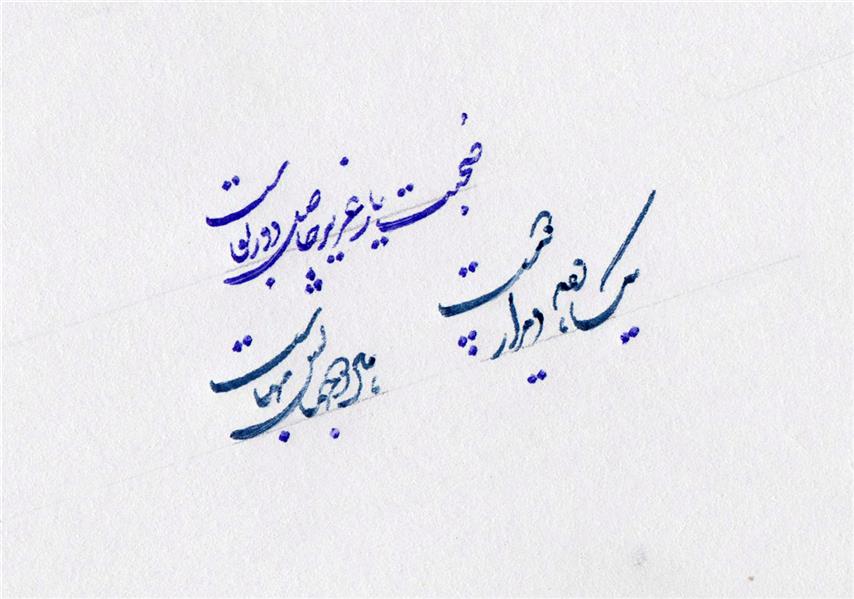 صحبت یار عزیز حاصل دور بقاست
یک دمه دیدار دوست هر دو جهانش بهاست